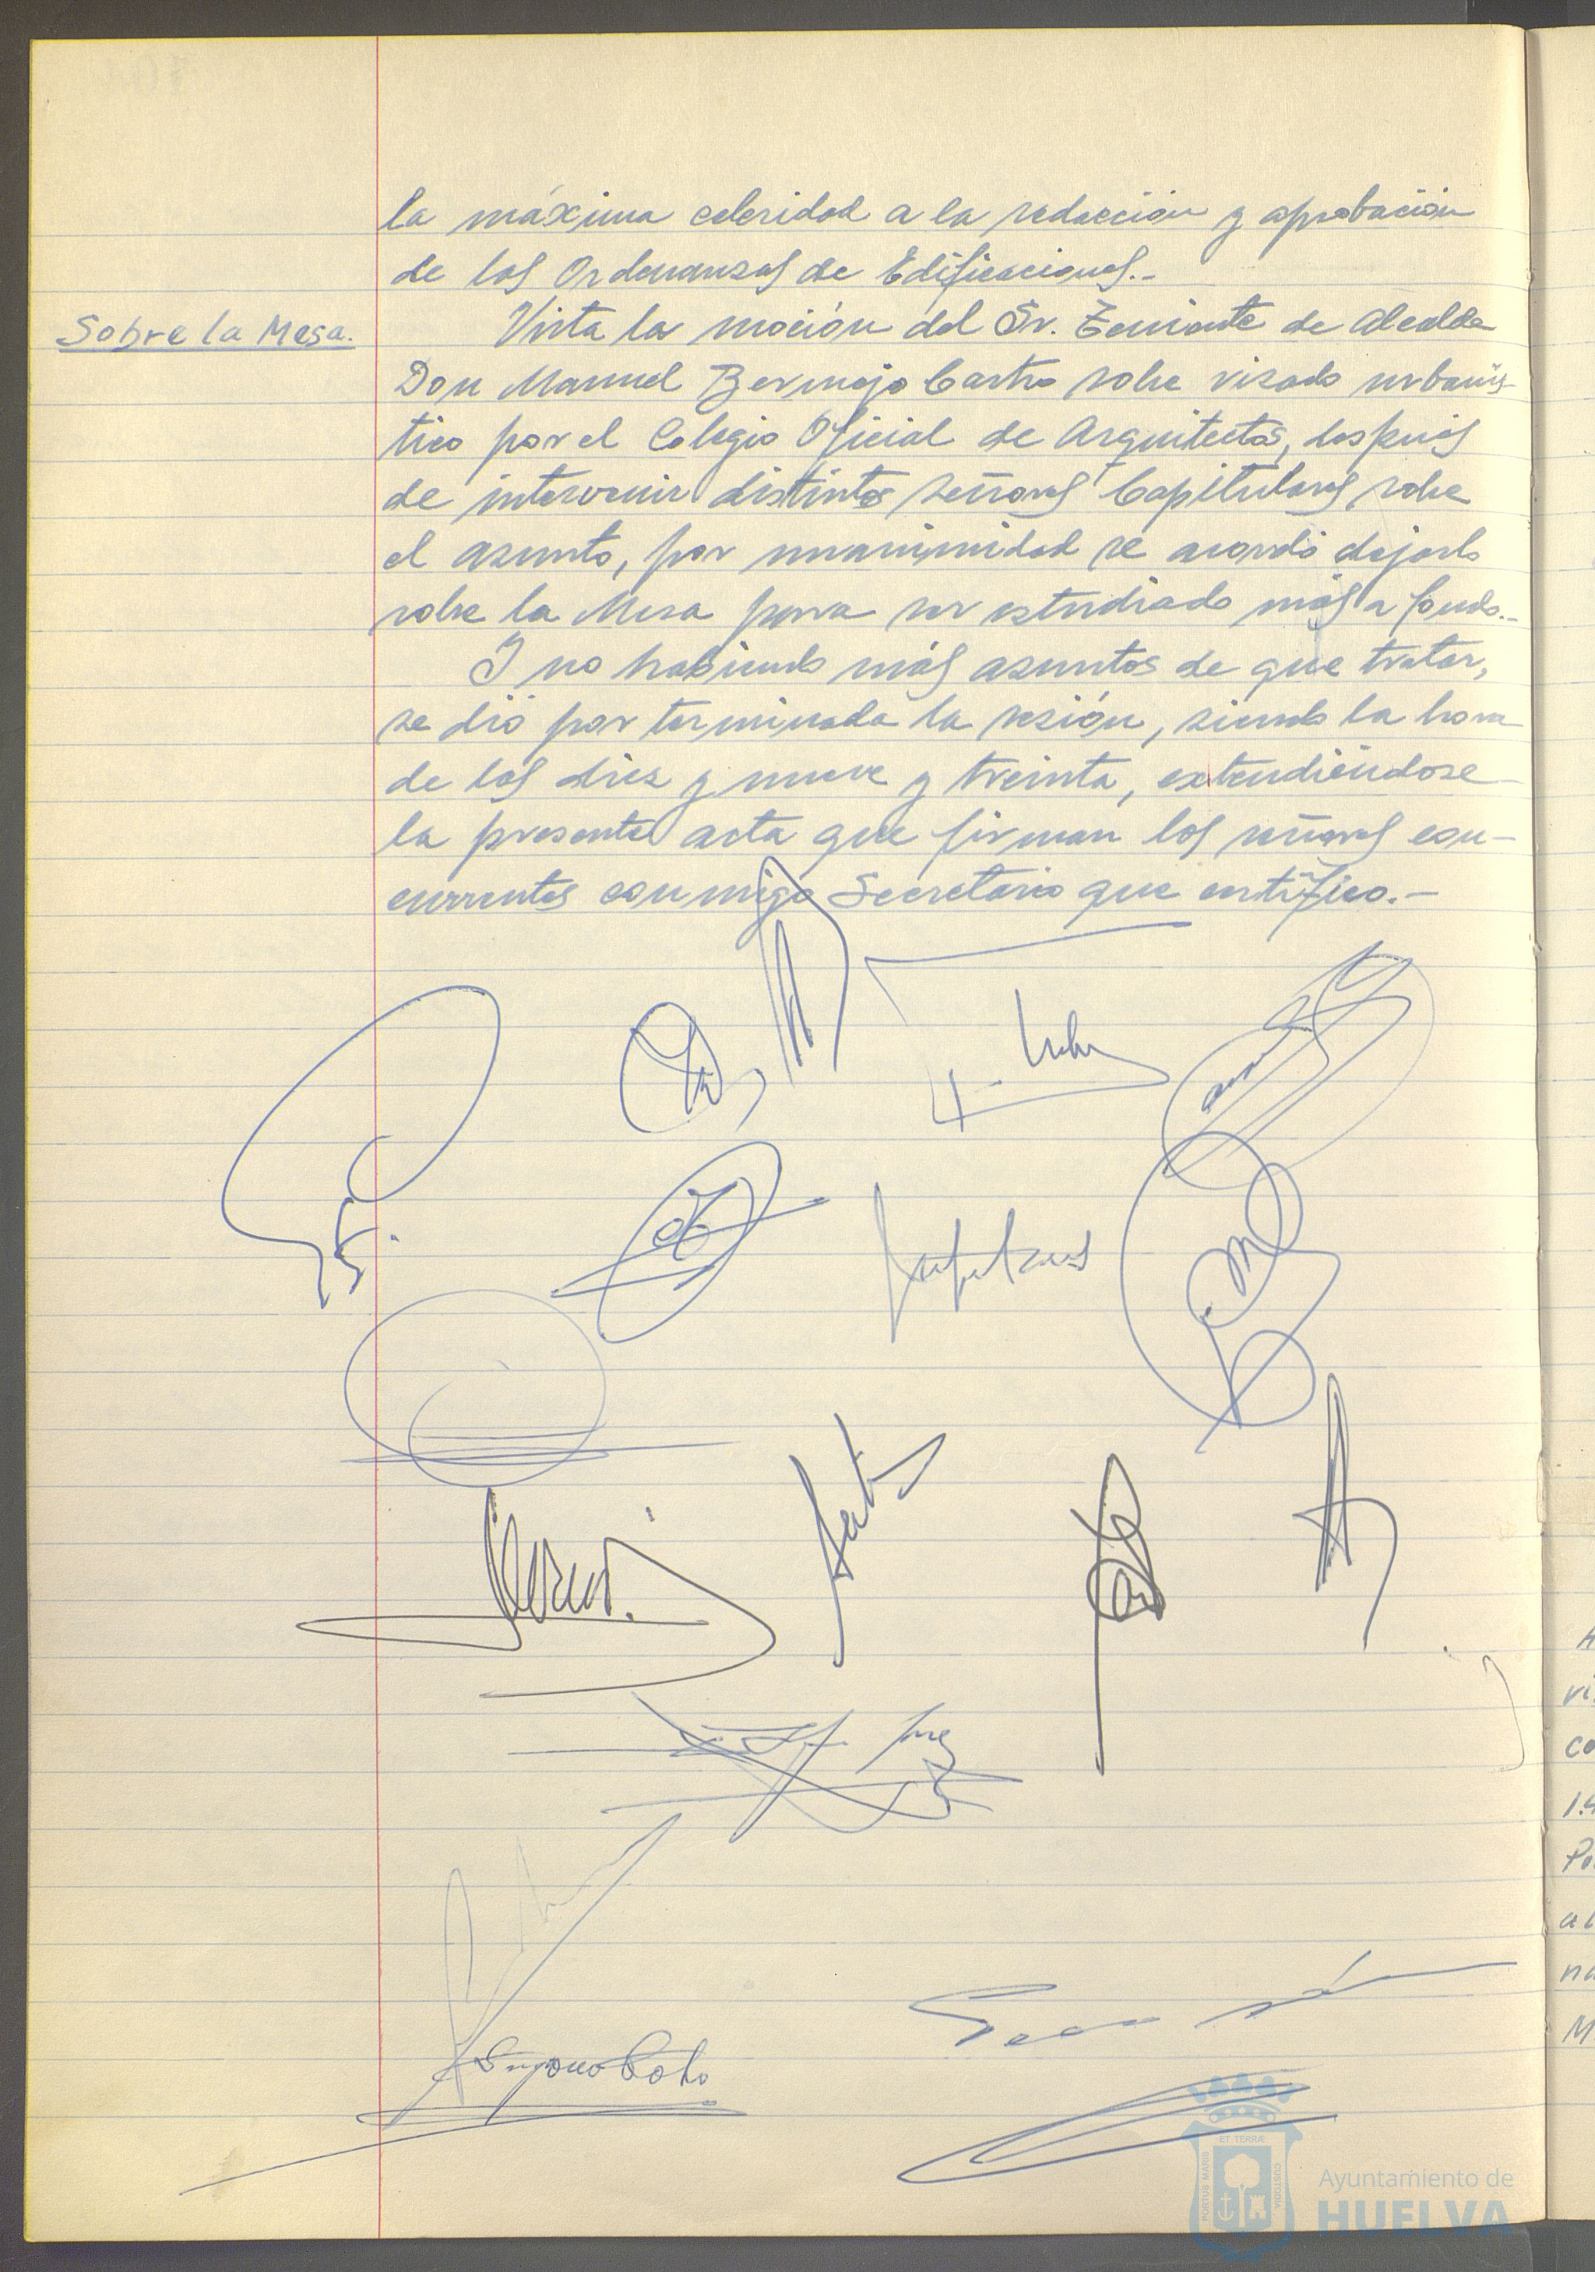 la máxima celeridad a la redacción y aprobación
de las Ordenanzas de Edificaciones.-
Sobre la Mesa.
Vista la moción del Sr. Teniente de Alcalde
Don Manuel Bermejo Castro sobre visado urbanís-
tico por el Colegio Oficial de Arquitectos, después
de intervenir distintos señores Capitulares sobre
el asunto, por unanimidad se acordó dejarlo
sobre la Mesa para ser estudiado más a fondo.-
Y no habiendo más asuntos de que tratar,
se dió por terminada la sesión, siendo la hora
de las diez y nueve y treinta, extendiéndose
la presente acta que firman los señores con-
currentes conmigo Secretario que certifico.-
ET TERRÆ
PORTUS MARIS
CUSTODIA
Ayuntamiento de
HUELVA